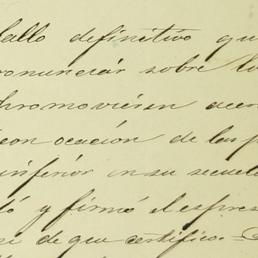 fallo definitivo que
ronunciar sobre lo
promovieren acer
con ocación de las p
inferior in su secuel
dó y firmó el espres
de que certifico.